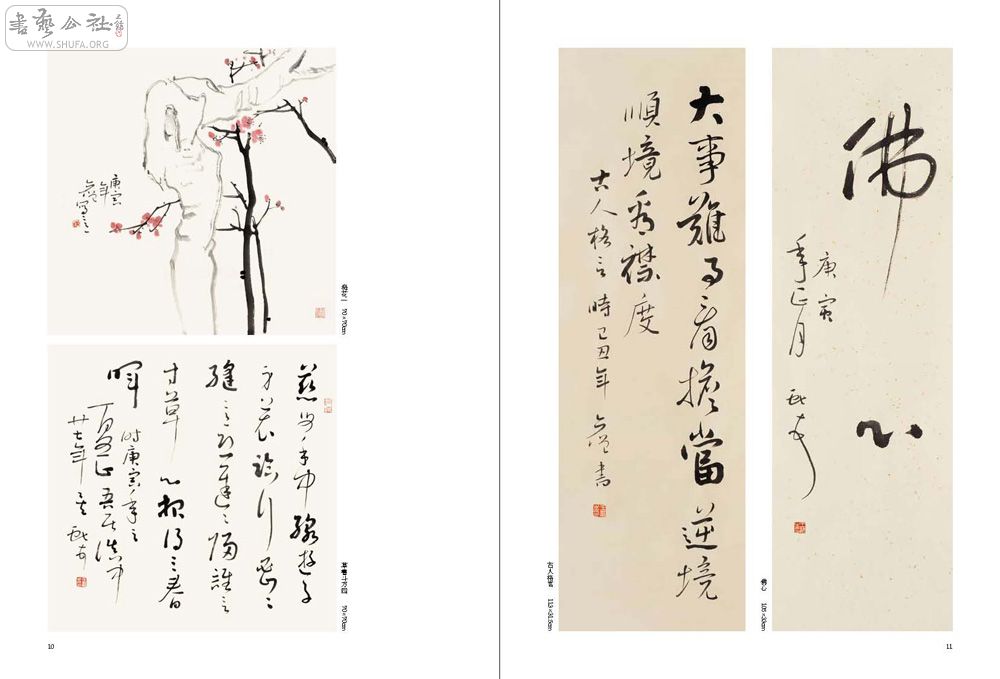 書藝公社
WWW.SHUFA.ORG
庚寅
年
寫之
梅花一 70×70cm
慈母手中線遊子
身衣臨行密密
縫意恐遲遲歸誰言
寸草心报得三春
暉
时庚寅年之
廿七年
草書斗方四 70×70cm
10
大事難事看擔當逆境
順境看襟度
古人格言 時己丑年 書
古人格言 113×31.5cm
佛心
庚寅
年正月
佛心
11